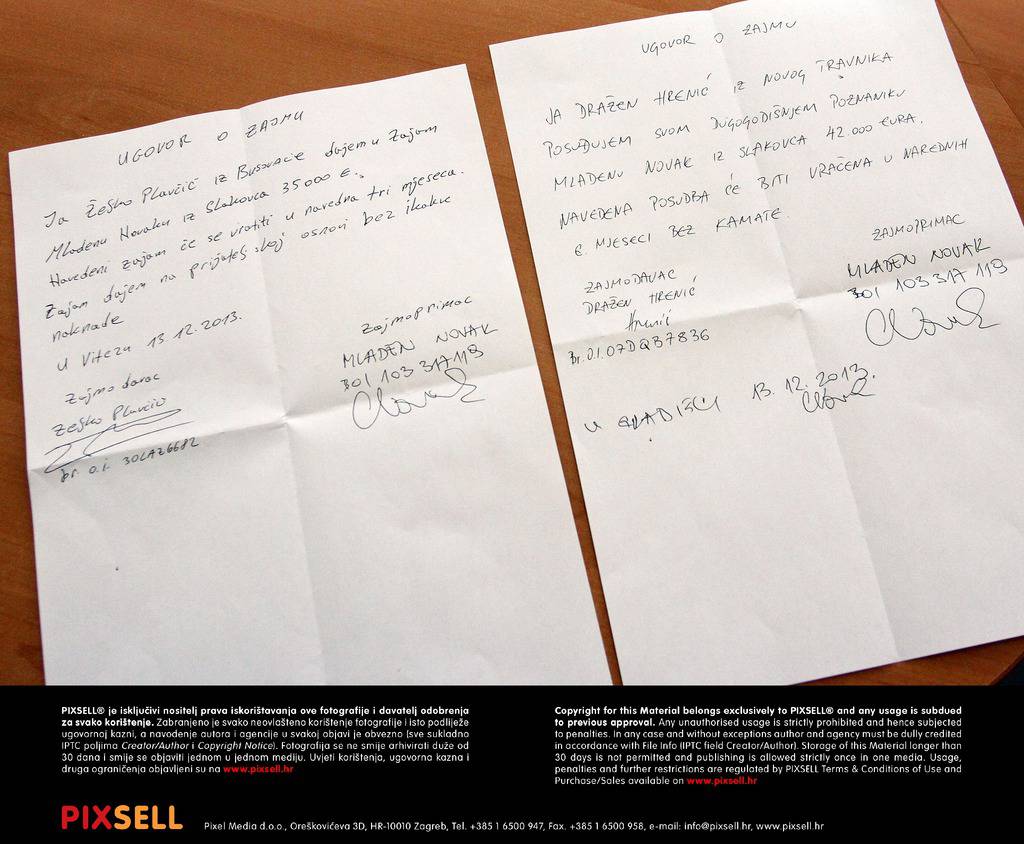 UGOVOR O ZAJMU
Ja Žeško Plavčić iz Busovače dajem u zajam
Mladenu Novaku iz Slakovca 35000 €.
Navedeni zajam će se vratiti u naredna tri mjeseca.
Zajam dajem na prijateljskoj osnovi bez ikakve
naknade
U Vitezu 13.12.2013.
Zajmodavac
Žeško Plavčić
br. o.i. 30LAZ6682
Zajmoprimac
MLADEN NOVAK
301 103 317 119
UGOVOR O ZAJMU
JA DRAŽEN HRENIĆ IZ NOVOG TRAVNIKA
POSUĐUJEM SVOM DUGOGODIŠNJEM POZNANIKU
MLADENU NOVAK IZ SLAKOVCA 42.000 EURA.
NAVEDENA POSUDBA ĆE BITI VRAĆENA U NAREDNIH
6 MJESECI BEZ KAMATE.
ZAJMODAVAC
DRAŽEN HRENIĆ
Hrenić
Br.O.I. 07DQB7836
ZAJMOPRIMAC
MLADEN NOVAK
301 103 317 119
U 13.12.2013.
PIXSELL® je isključivi nositelj prava iskorištavanja ove fotografije i davatelj odobrenja
za svako korištenje. Zabranjeno je svako neovlašteno korištenje fotografije i isto podliježe
ugovornoj kazni, a navođenje autora i agencije u svakoj objavi je obvezno (sve sukladno
IPTC poljima Creator/Author i Copyright Notice). Fotografija se ne smije arhivirati duže od
30 dana i smije se objaviti jednom u jednom mediju. Uvjeti korištenja, ugovorna kazna i
druga ograničenja objavljeni su na www.pixsell.hr
Copyright for this Material belongs exclusively to PIXSELL® and any usage is subdued
to previous approval. Any unauthorised usage is strictly prohibited and hence subjected
to penalties. In any case and without exceptions author and agency must be dully credited
in accordance with File Info (IPTC field Creator/Author). Storage of this Material longer than
30 days is not permitted and publishing is allowed strictly once in one media. Usage,
penalties and further restrictions are regulated by PIXSELL Terms & Conditions of Use and
Purchase/Sales available on www.pixsell.hr
PIXSELL
Pixel Media d.o.o., Oreškovićeva 3D, HR-10010 Zagreb, Tel. +385 1 6500 947, Fax. +385 1 6500 958, e-mail: info@pixsell.hr, www.pixsell.hr